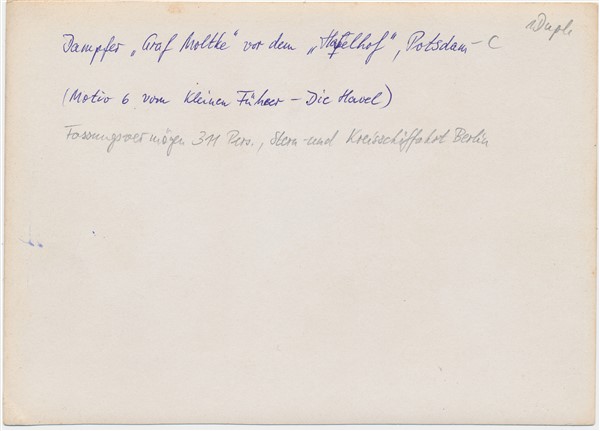 1 Dupl.
Dampfer „Graf Moltke" vor dem „Havelhof", Potsdam - C
(Motiv 6 vom Kleinen Führer - Die Havel)
Fassungsvermögen 311 Pers., Stern- und Kreisschiffahrt Berlin